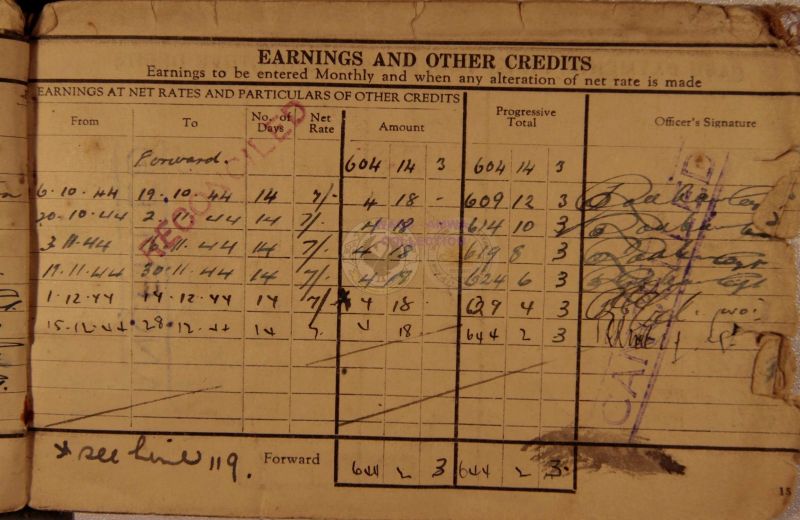 EARNINGS AND OTHER CREDITS
Earnings to be entered Monthly and when any alteration of net rate is made
EARNINGS AT NET RATES AND PARTICULARS OF OTHER CREDITS
From To No. of Days Net Rate Amount Progressive Total Officer's Signature
Forward. 604 14 3 604 14 3
6.10.44 19.10.44 14 7/- 4 18 - 609 12 3
20.10.44 2.11.44 14 7/- 4 18 614 10 3
3.11.44 16.11.44 14 7/- 4 18 619 8 3
17.11.44 30.11.44 14 7/- 4 18 624 6 3
1.12.44 14.12.44 14 7/- * 4 18 - 629 4 3
15.12.44 28.12.44 14 7. 4 18 644 2 3
RECONCILED
CANCELLED
* see line 119. Forward 644 2 3 644 2 3
15